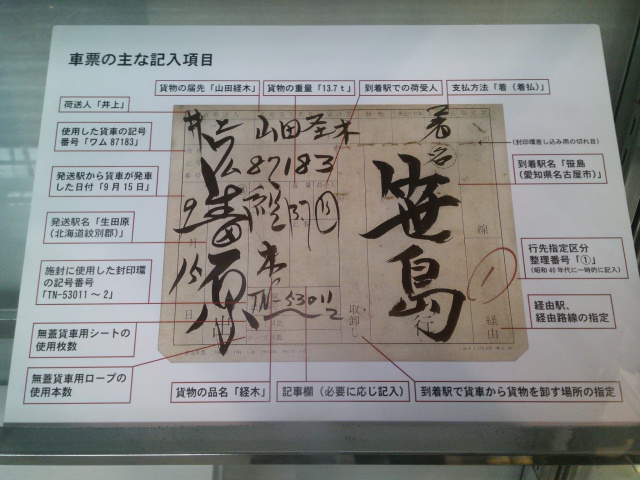 車票の主な記入項目
貨物の届先「山田経木」
貨物の重量「13.7t」
到着駅での荷受人
支払方法「着（着払）」
荷送人「井上」
使用した貨車の記号
番号「ワム87183」
発送駅から貨車が発車
した日付「9月15日」
発送駅名「生田原
（北海道紋別郡）」
施封に使用した封印環
の記号番号
「TN-53011～2」
無蓋貨車用シートの
使用枚数
無蓋貨車用ロープの
使用本数
貨物の品名「経木」
記事欄（必要に応じ記入）
到着駅で貨車から貨物を卸す場所の指定
（封印環差し込み用の切れ目）
到着駅名「笹島
（愛知県名古屋市）」
行先指定区分
整理番号「①」
（昭和40年代に一時的に記入）
経由駅、
経由路線の指定
井上
山田経木
着
名
ワム87183
笹島
9月15日
生田原
経木
13.7
TN-53011
2
線
経由
取卸し
行
1